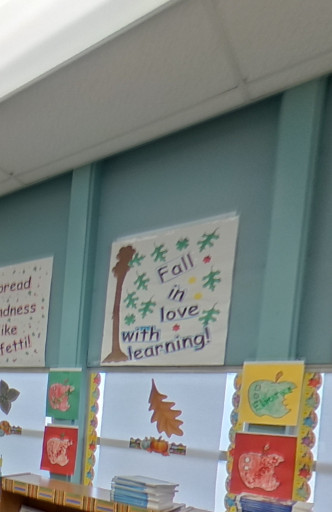 pread
ndness
ike
fetti!
Fall
in
love
with
learning!